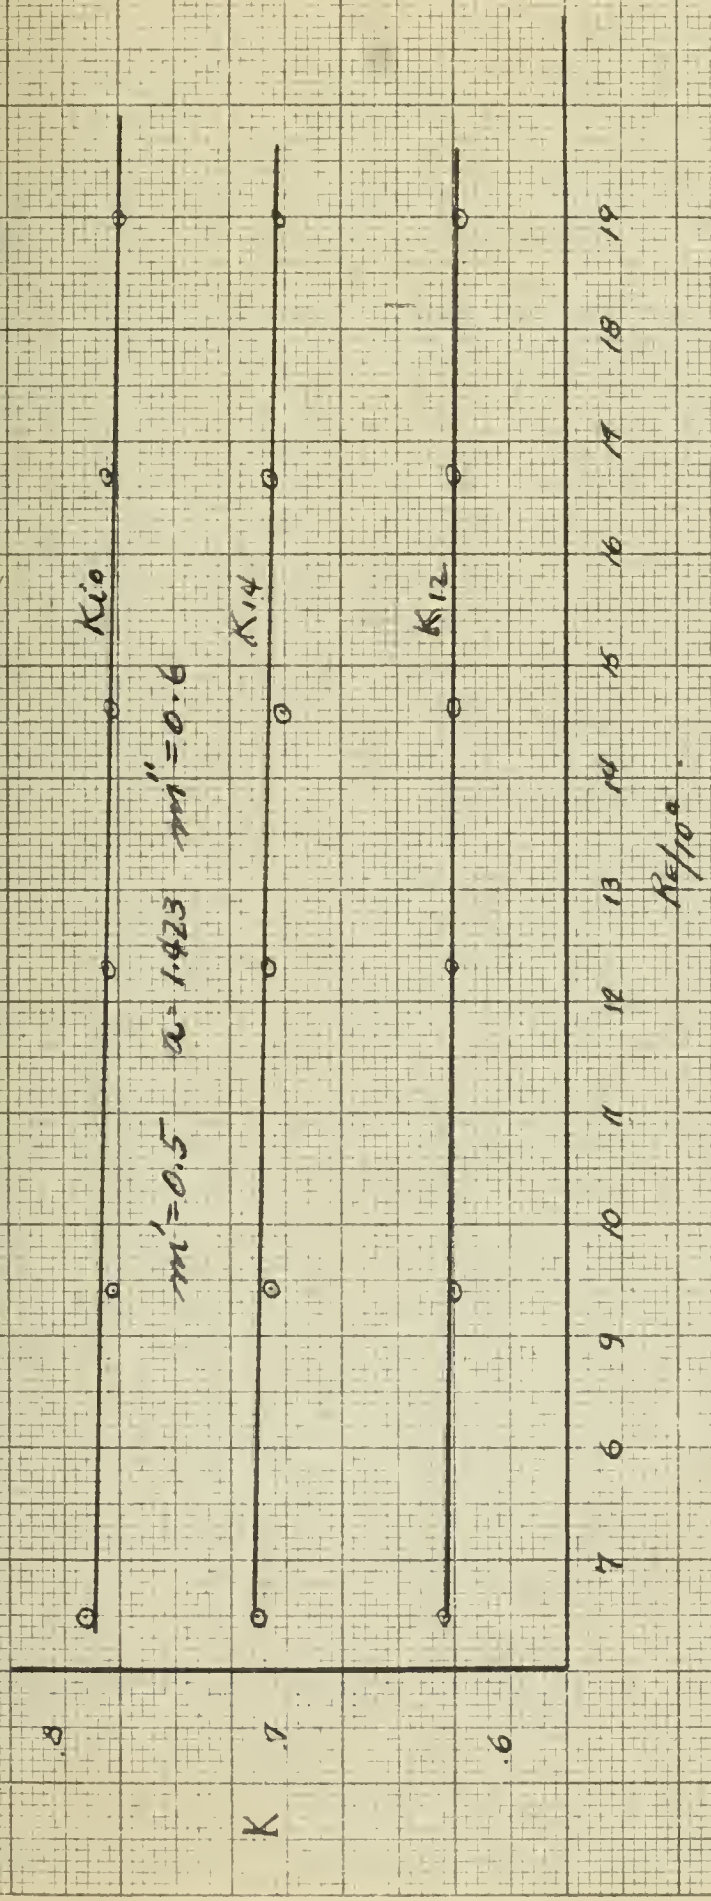 .8
.7
.6
K
K10
K14
K12
m'=0.5 a=1.423 m"=0.6
7 6 9 10 11 12 13 14 15 16 17 18 19